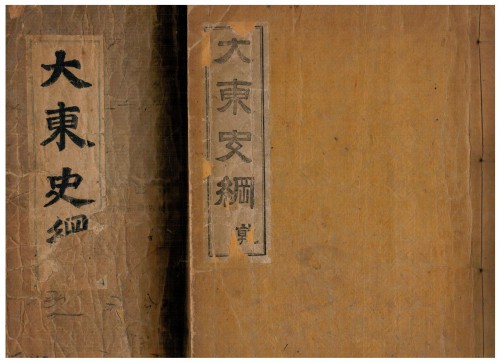 大東史綱
大東史綱